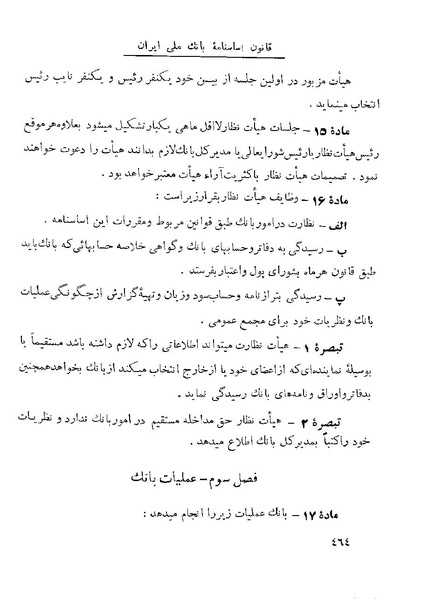 قانون اساسنامهٔ بانک ملی ایران
هیأت مزبور در اولین جلسه از بین خود یکنفر رئیس و یکنفر نایب رئیس
انتخاب مینماید .
مادهٔ ۱۵ – جلسات هیأت نظار لااقل ماهی یکبار تشکیل میشود بعلاوه هر موقع
رئیس هیأت نظار یا رئیس شورایعالی یا مدیر کل بانک لازم بدانند هیأت را دعوت خواهند
نمود . تصمیمات هیأت نظار باکثریت آراء هیأت معتبر خواهد بود .
مادهٔ ۱۶ – وظایف هیأت نظار بقرار زیر است :
الف – نظارت در امور بانک طبق قوانین مربوط و مقررات این اساسنامه .
ب – رسیدگی به دفاتر و حسابهای بانک و گواهی خلاصه حسابهائی که بانک باید
طبق قانون هر ماه بشورای پول و اعتبار بفرستد .
پ – رسیدگی بترازنامه و حساب سود و زیان و تهیهٔ گزارش از چگونگی عملیات
بانک و نظریات خود برای مجمع عمومی .
تبصرهٔ ۱ – هیأت نظارت میتواند اطلاعاتی را که لازم داشته باشد مستقیماً یا
بوسیلهٔ نماینده‌ای که از اعضای خود یا از خارج انتخاب میکند از بانک بخواهد همچنین
بدفاتر و اوراق و نامه‌های بانک رسیدگی نماید .
تبصرهٔ ۲ – هیأت نظار حق مداخله مستقیم در امور بانک ندارد و نظریات
خود را کتباً بمدیر کل بانک اطلاع میدهد .
فصل سوم – عملیات بانک
مادهٔ ۱۷ – بانک عملیات زیر را انجام میدهد :
۴۶۴